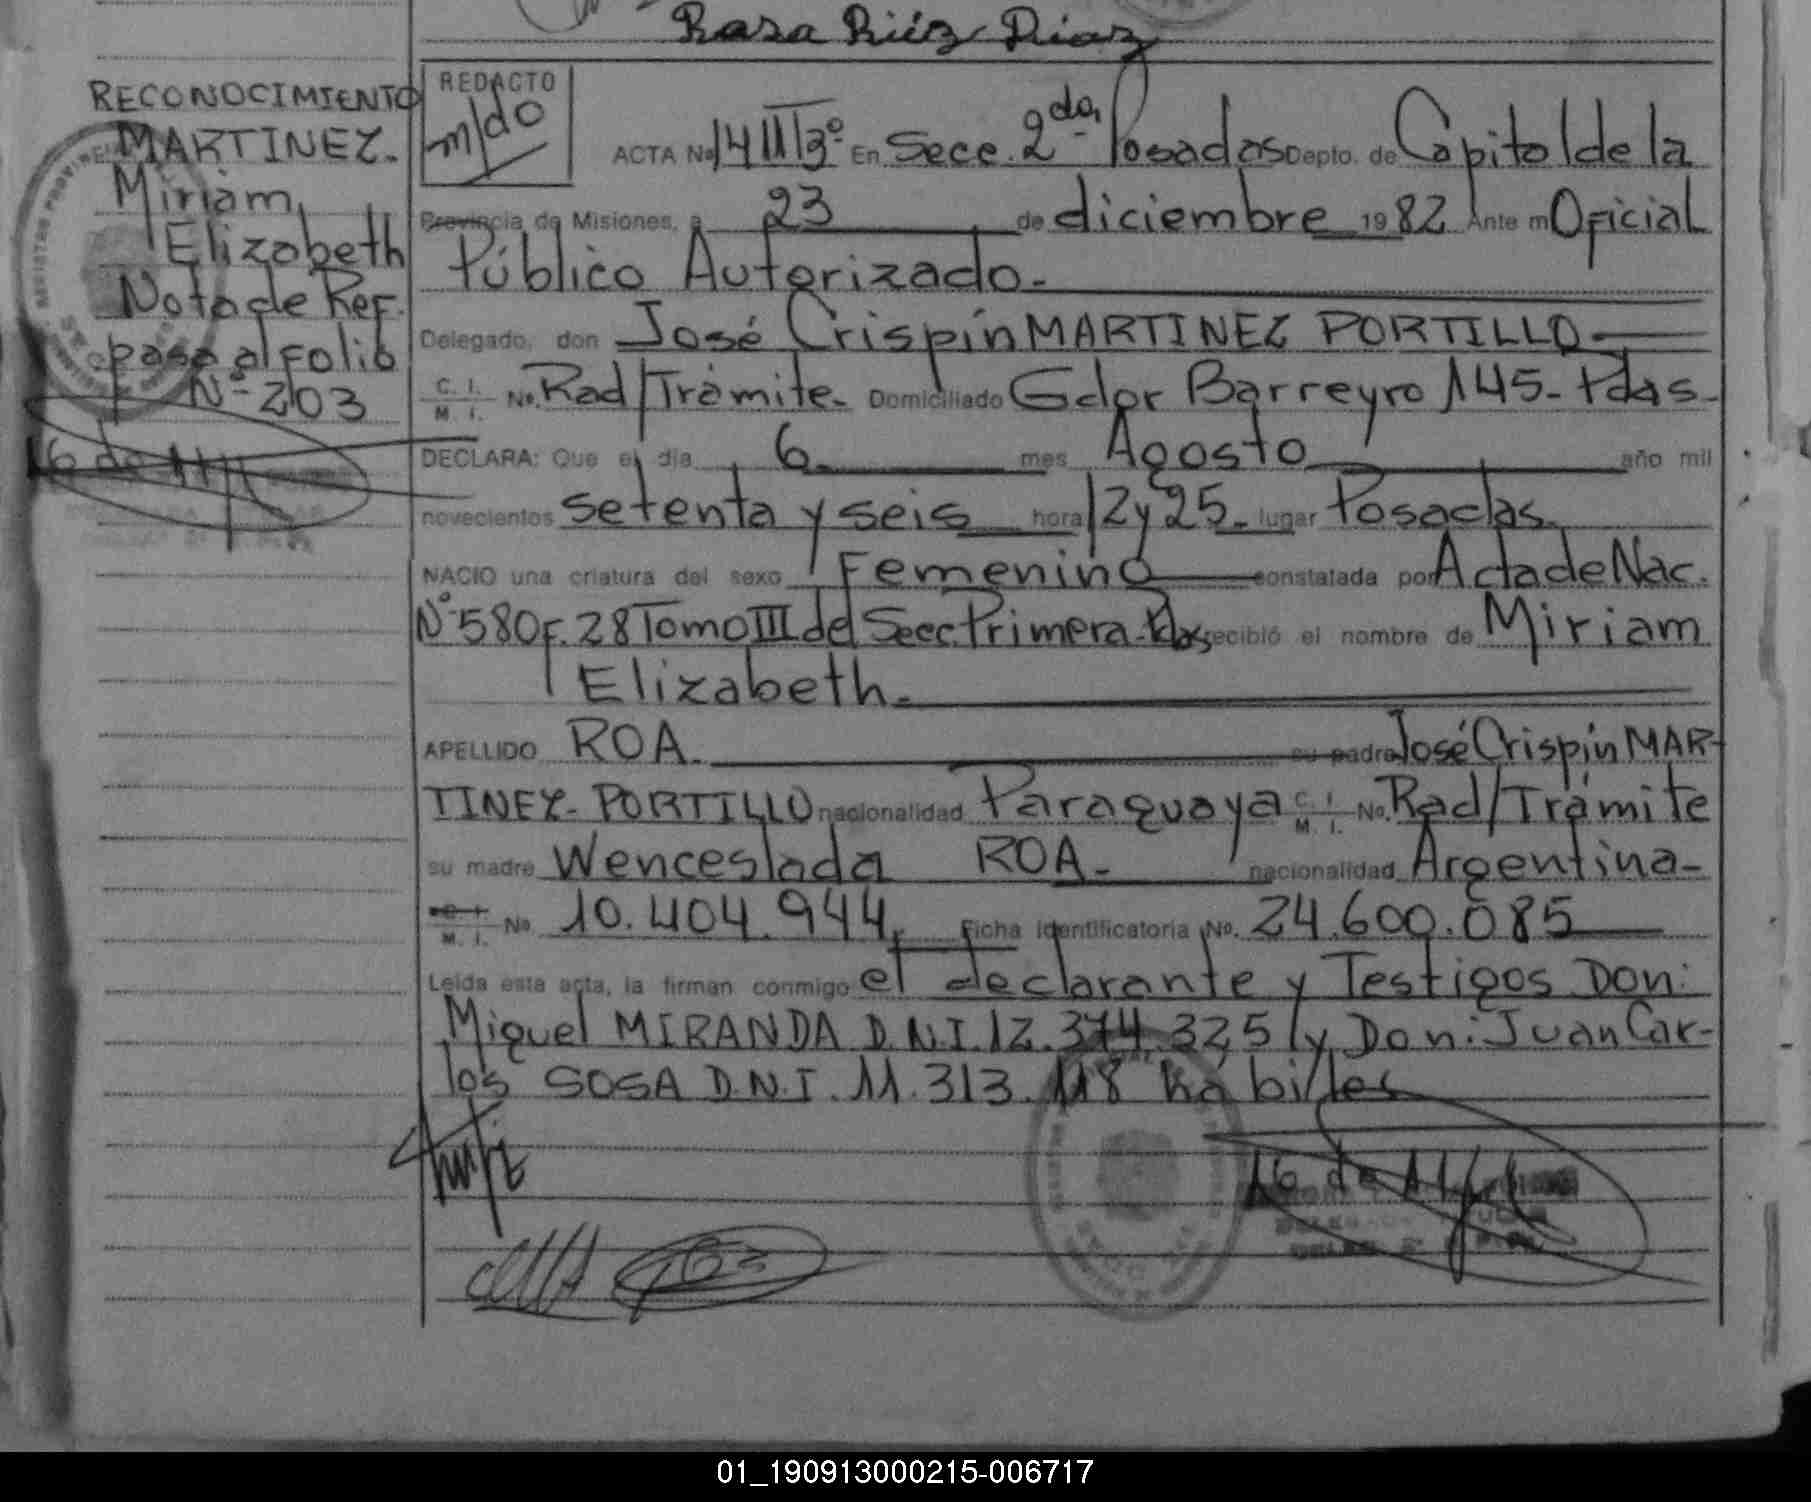 Rosa Ruíz Díaz
RECONOCIMIENTO
MARTINEZ.
Miriam
Elizabeth
Nota de Ref.
pasa al Folio
Nº 203
REDACTO
m/do
ACTA No. 14 III/3º En Secc. 2da. Posadas Depto. de Capital de la
Provincia de Misiones, a 23 de diciembre 1982 Ante mi Oficial
Público Autorizado.
Delegado, don José Crispín MARTINEZ PORTILLO
C. I. M. I. No. Rad/Trámite. Domiciliado Gdor Barreyro 145 - Pdas.
DECLARA: Que el dia 6 mes Agosto año mil
novecientos setenta y seis hora 12 y 25. lugar Posadas.
NACIO una criatura del sexo Femenino constatada por Acta de Nac.
Nº 580 F. 28 Tomo III del Secc. Primera. Pdas recibió el nombre de Miriam
Elizabeth.
APELLIDO ROA. su padre José Crispín MAR-
TINEZ - PORTILLO nacionalidad Paraguaya C. I. M. I. No. Rad/Trámite
su madre Wenceslada ROA. nacionalidad Argentina-
C. I. M. I. No. 10.404.944. Ficha identificatoria No. 24.600.085
Leída esta acta, la firman conmigo el declarante y Testigos Don:
Miguel MIRANDA D.N.I. 12.374.325 y Don: Juan Car-
los SOSA D.N.I. 11.313.118 hábiles
01_190913000215-006717